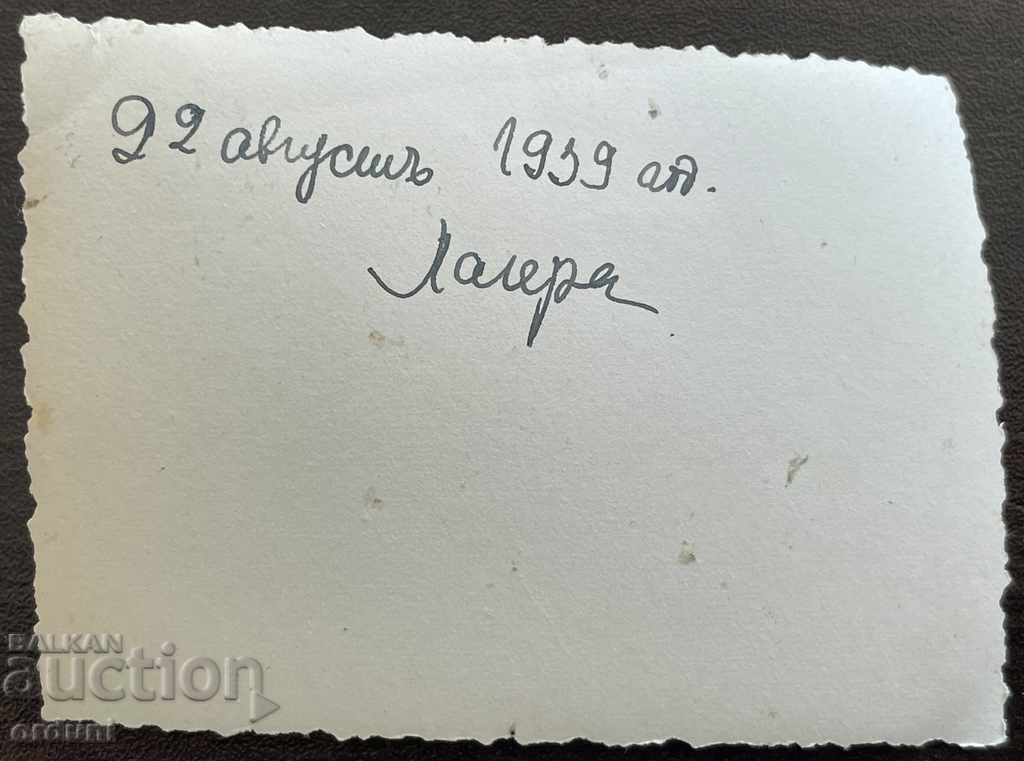 22 августъ 1939 год.
Лагера
BALKAN
auction
oroluni